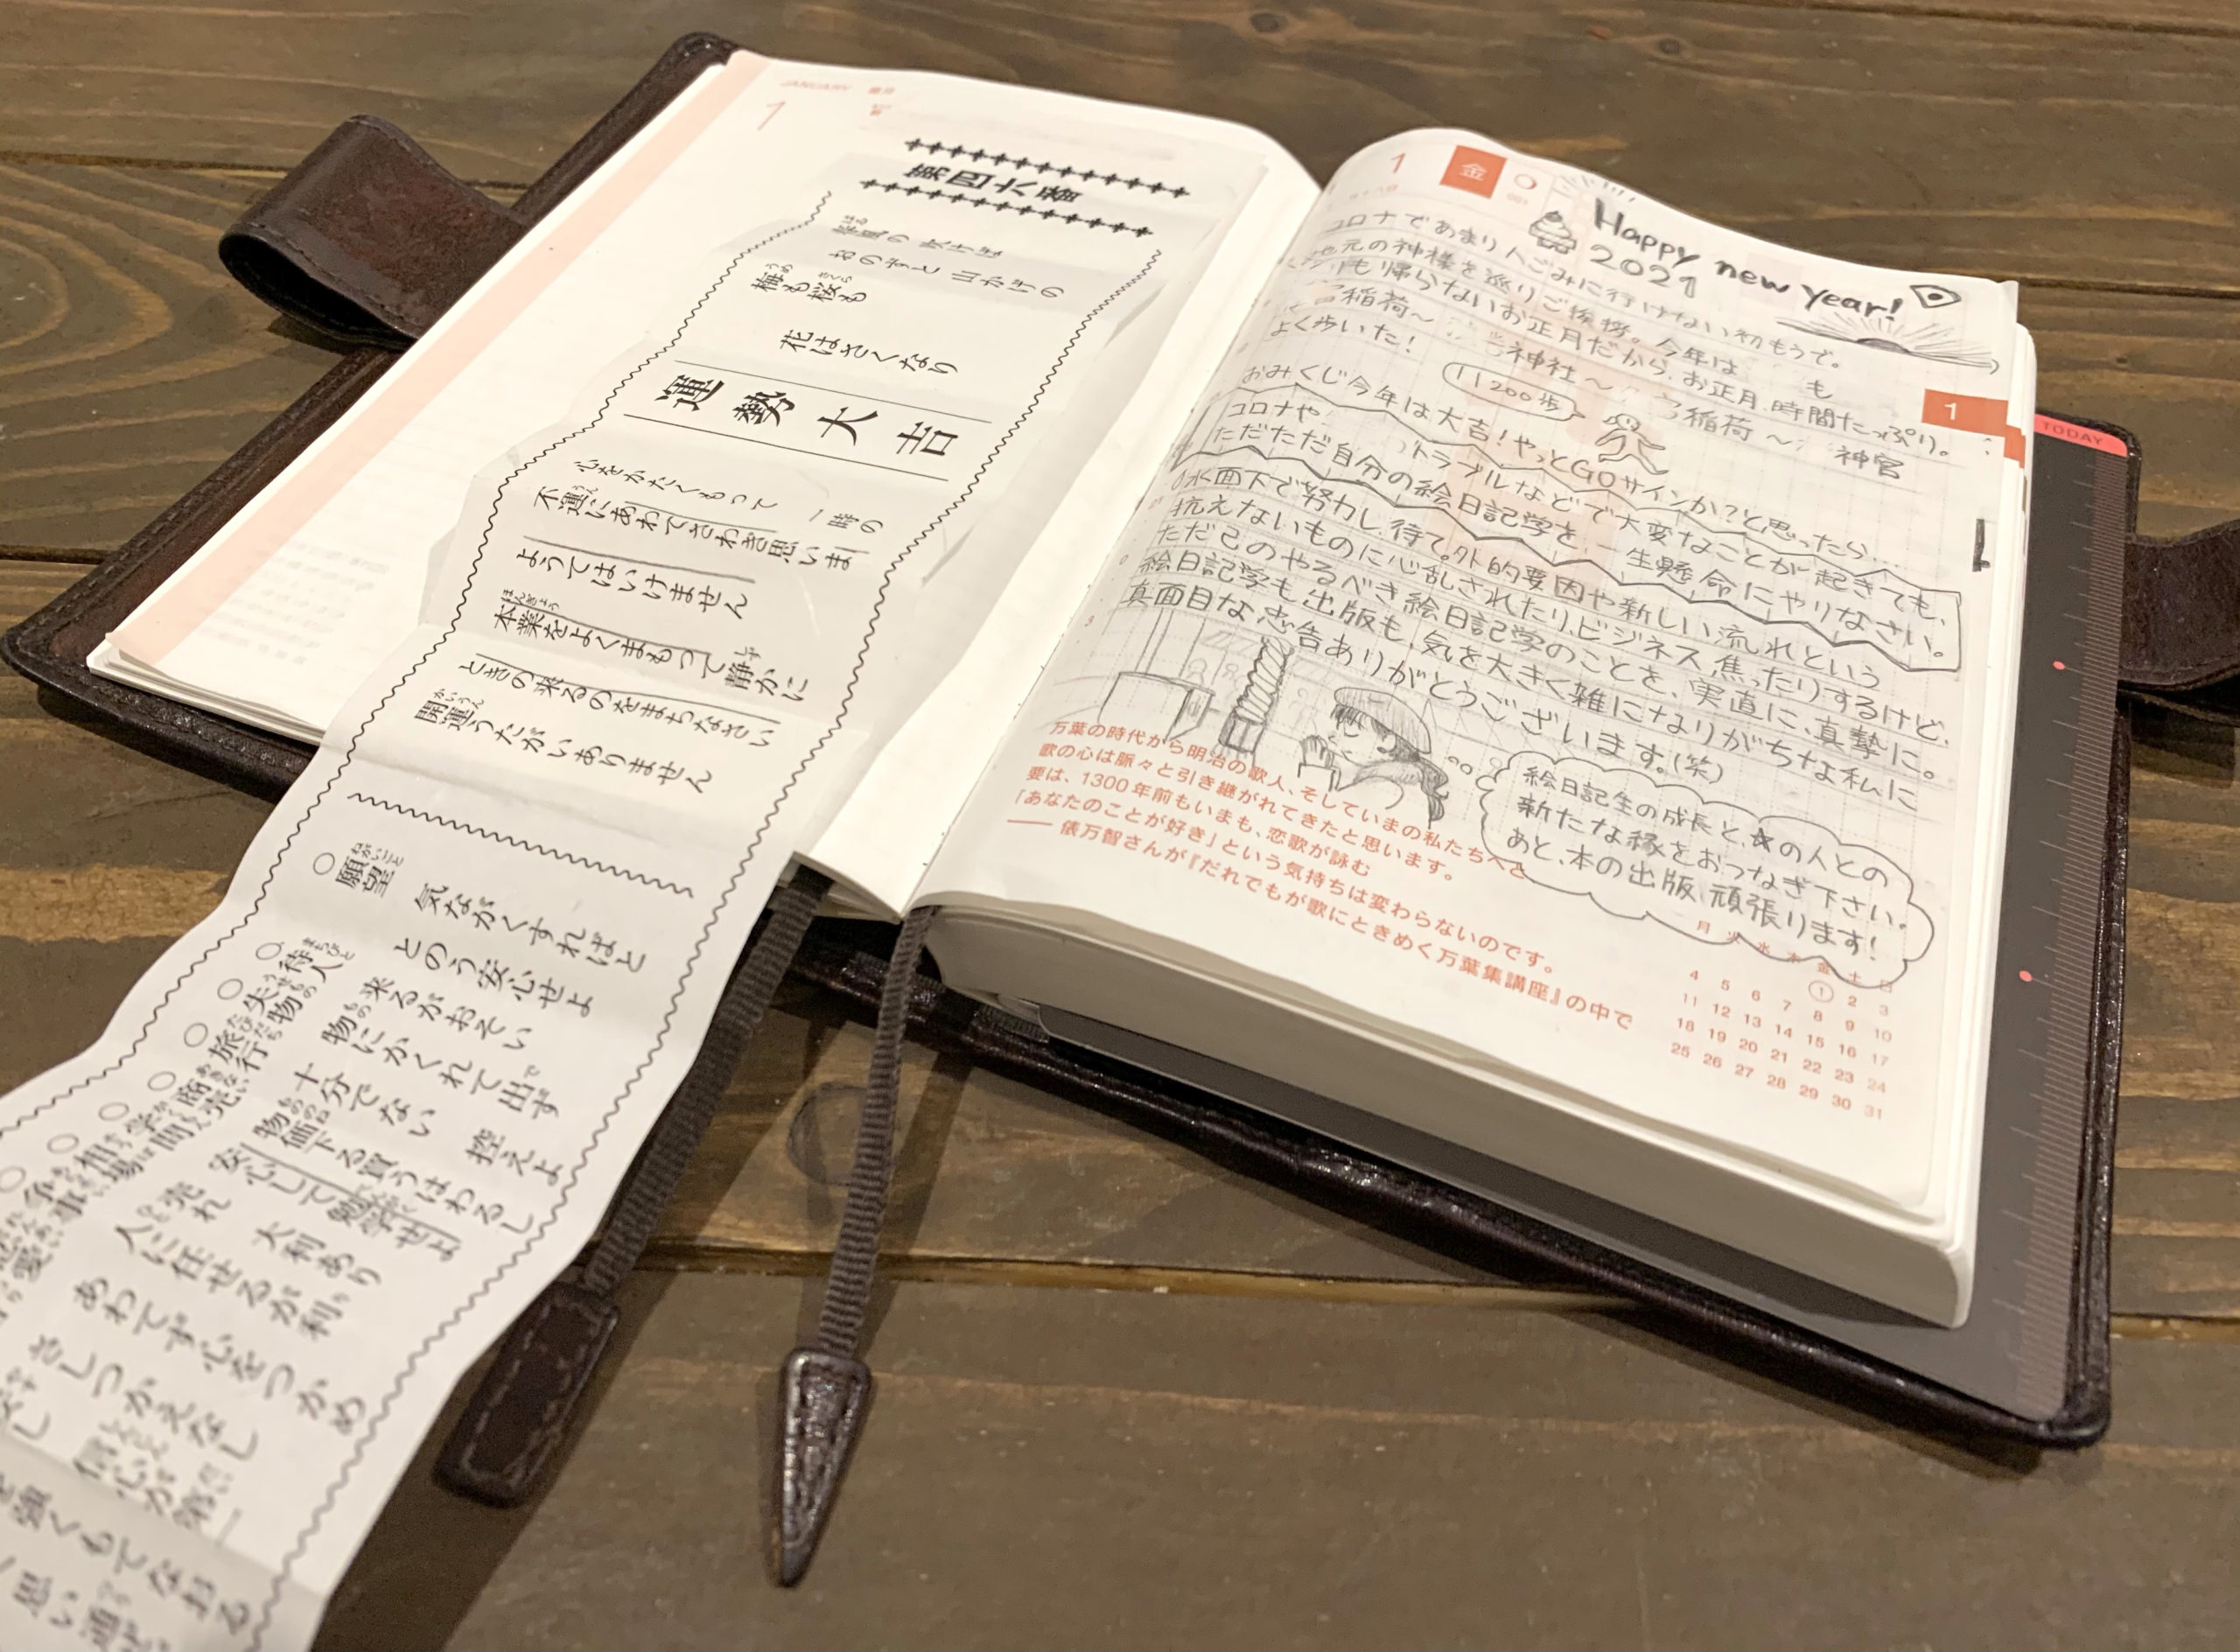 JANUARY
1
第四六番
春風の吹けば
おのずと山かげの
梅も桜も
花はさくなり
運勢大吉
心をかたくもって 一時の
不運にあわてさわぎ思いま
ようてはいけません
本業をよくまもって静かに
ときの来るのをまちなさい
開運うたがいありません
願望 気ながくすればと
とのう安心せよ
待人 来るがおそい
失物 物にかくれて出ず
旅行 十分でない 控えよ
商売 物価下る買うはわるし
学問 安心して勉学せよ
相場 売れ 大利あり
争事 人に任せるが利
恋愛 あわてず心をつかめ
さしつかえなし
信心が第一
強くもてなおる
1 金
Happy new year!
2021
コロナであまり人ごみに行けない初もうで。
元の神様を巡りご挨拶。今年は も
も帰らないお正月だから、お正月、時間たっぷり。
稲荷〜 神社〜 稲荷〜 神宮
よく歩いた!
11200歩
おみくじ今年は大吉!やっとGOサインか?と思ったら…
コロナや トラブルなどで大変なことが起きても、
ただただ自分の絵日記学を、一生懸命にやりなさい。
水面下で努力し、待て。外的要因や新しい流れという
抗えないものに心乱されたり、ビジネス、焦ったりするけど、
ただ己のやるべき絵日記学のことを、実直に、真摯に。
絵日記学も出版も、気を大きく雑になりがちな私に
真面目な忠告ありがとうございます。(笑)
絵日記生の成長と、★の人との
新たな縁をおつなぎ下さい。
あと、本の出版、頑張ります!
1
TODAY
万葉の時代から明治の歌人、そしていまの私たちへと
歌の心は脈々と引き継がれてきたと思います。
要は、1300年前もいまも、恋歌が詠む
「あなたのことが好き」という気持ちは変わらないのです。
——俵万智さんが『だれでもが歌にときめく万葉集講座』の中で
月 火 水 木 金 土 日
1 2 3
4 5 6 7 8 9 10
11 12 13 14 15 16 17
18 19 20 21 22 23 24
25 26 27 28 29 30 31